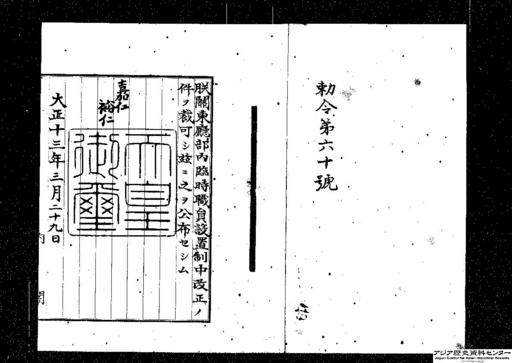 勅令第六十號
朕關東廳部內臨時職員設置制中改正ノ
件ヲ裁可シ玆ニ之ヲ公布セシム
嘉仁
裕仁
天皇御璽
大正十三年三月二十九日
内 閣
アジア歴史資料センター
Japan Center for Asian Historical Records